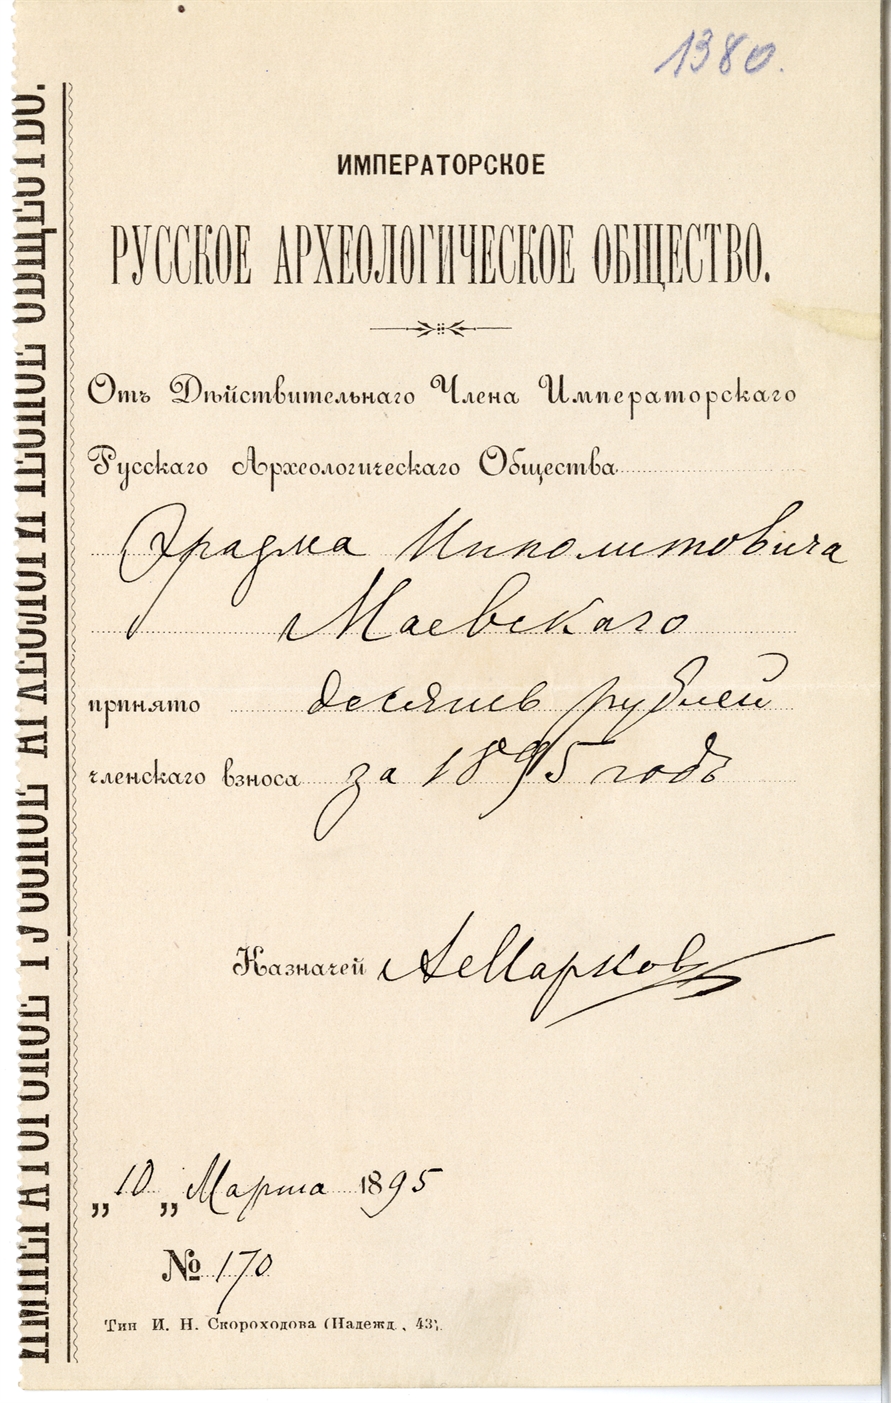 1380.
ИМПЕРАТОРСКОЕ
РУССКОЕ АРХЕОЛОГИЧЕСКОЕ ОБЩЕСТВО.
Отъ Дѣйствительнаго Члена Императорскаго
Русскаго Археологическаго Общества
Эразма Иполитовича
Маевскаго
принято десять рублей
членскаго взноса за 1895 годъ
Казначей АМарковъ
„10„ Марта 1895
№ 170
Тип И. Н. Скороходова (Надежд., 43).
ИМПЕРАТОРСКОЕ РУССКОЕ АРХЕОЛОГИЧЕСКОЕ ОБЩЕСТВО.